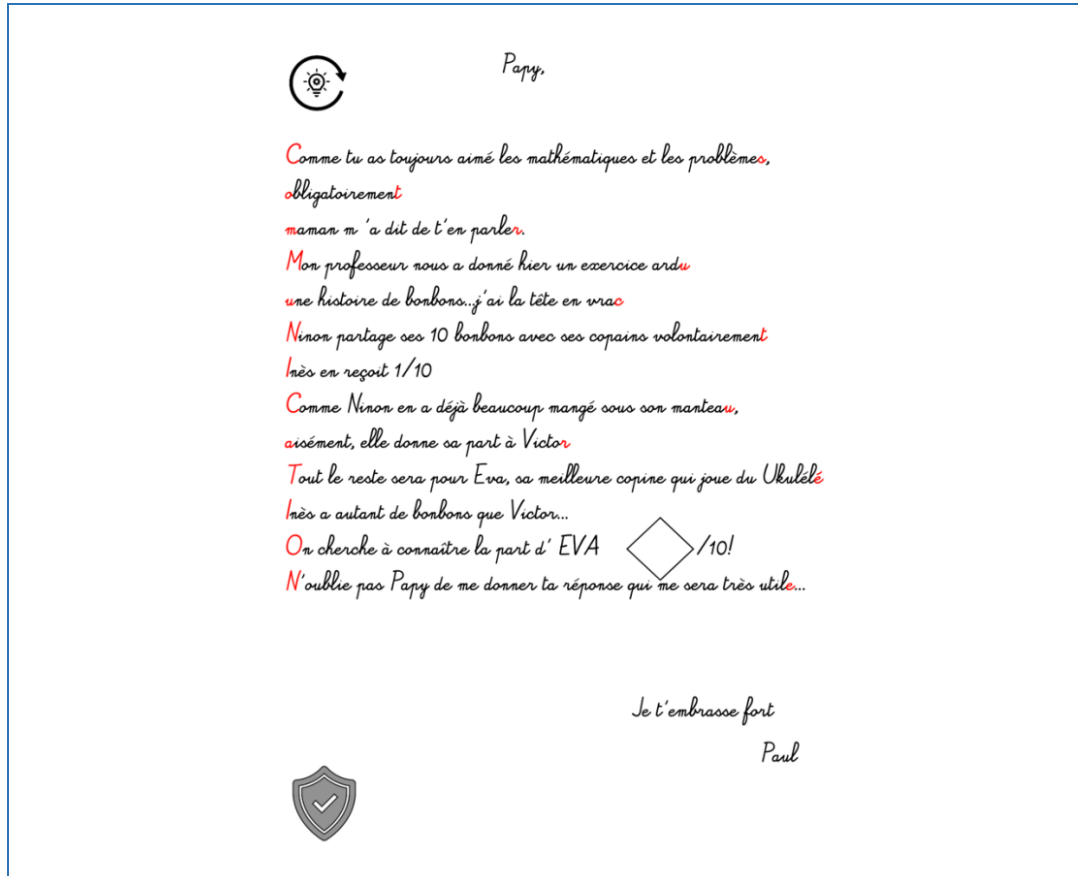 Papy,
Comme tu as toujours aimé les mathématiques et les problèmes,
obligatoirement
maman m 'a dit de t'en parler.
Mon professeur nous a donné hier un exercice ardu
une histoire de bonbons...j'ai la tête en vrac
Ninon partage ses 10 bonbons avec ses copains volontairement
Inès en reçoit 1/10
Comme Ninon en a déjà beaucoup mangé sous son manteau,
aisément, elle donne sa part à Victor
Tout le reste sera pour Eva, sa meilleure copine qui joue du Ukulélé
Inès a autant de bonbons que Victor...
On cherche à connaître la part d' EVA /10!
N'oublie pas Papy de me donner ta réponse qui me sera très utile...
Je t'embrasse fort
Paul